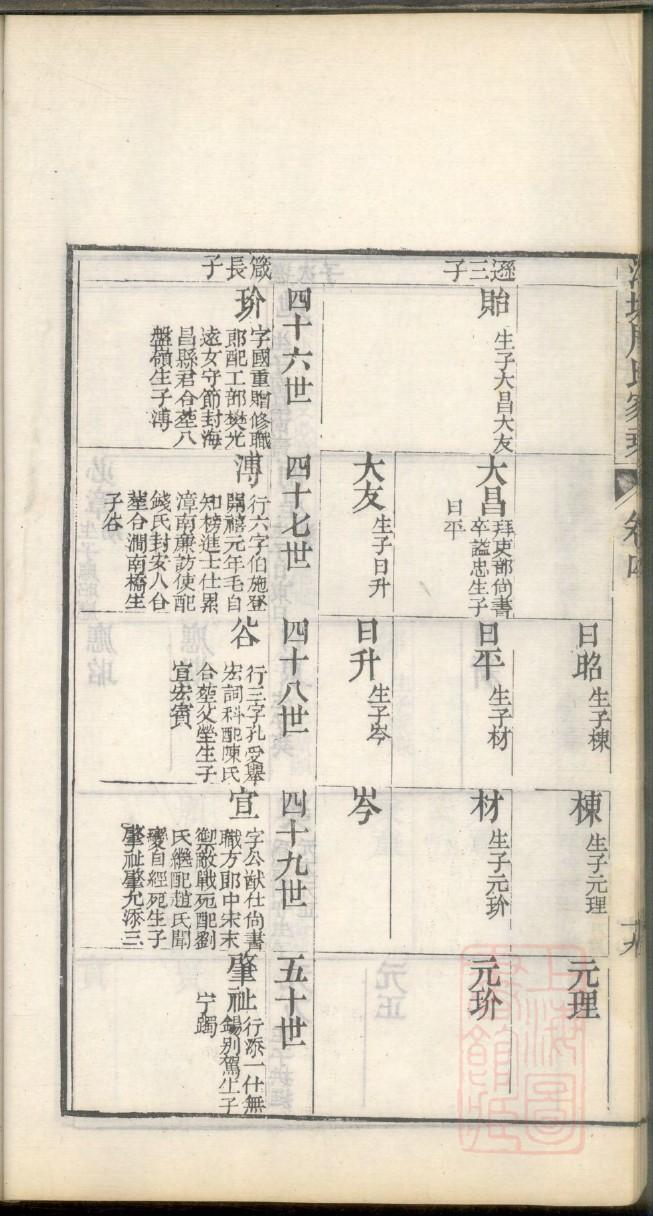 遜三子
貽
生子大昌大友
大昌
拜吏部尚書
卒諡忠生子
日平
大友
生子日升
日昭
生子棟
日平
生子材
日升
生子岑
棟
生子元理
材
生子元玠
岑
元理
元玠
四十六世
四十七世
四十八世
四十九世
五十世
箴長子
玠
字國重贈修職
郎配工部樊光
遠女守節封海
昌縣君合塟八
盤嶺生子溥
溥
行六字伯施登
開禧元年毛自
知榜進士仕累
漳南廉訪使配
錢氏封安人合
塟合澗南橋生
子谷
谷
行三字孔受舉
宏詞科配陳氏
合塟父塋生子
宜宏賓
宣
字公猷仕尚書
職方郎中宋末
禦敵戰死配劉
氏繼配趙氏聞
變自經死生子
肇祉肇允添三
肇祉
行添一仕無
錫別駕生子
宁躅
家乘
卷四
上海圖書館藏